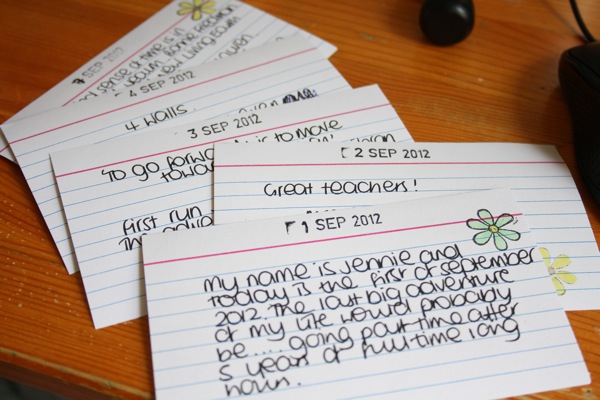 7 SEP 2012
sense at time in
living room
4 SEP 2012
4 walls.
3 SEP 2012
is to move
To go forwa
towar
First run
2 SEP 2012
Great teachers!
1 SEP 2012
my name is Jennie and
today is the first of september
2012. The last big adventure
of my life would probably
be.... going part time after
5 years of full time long
hours.